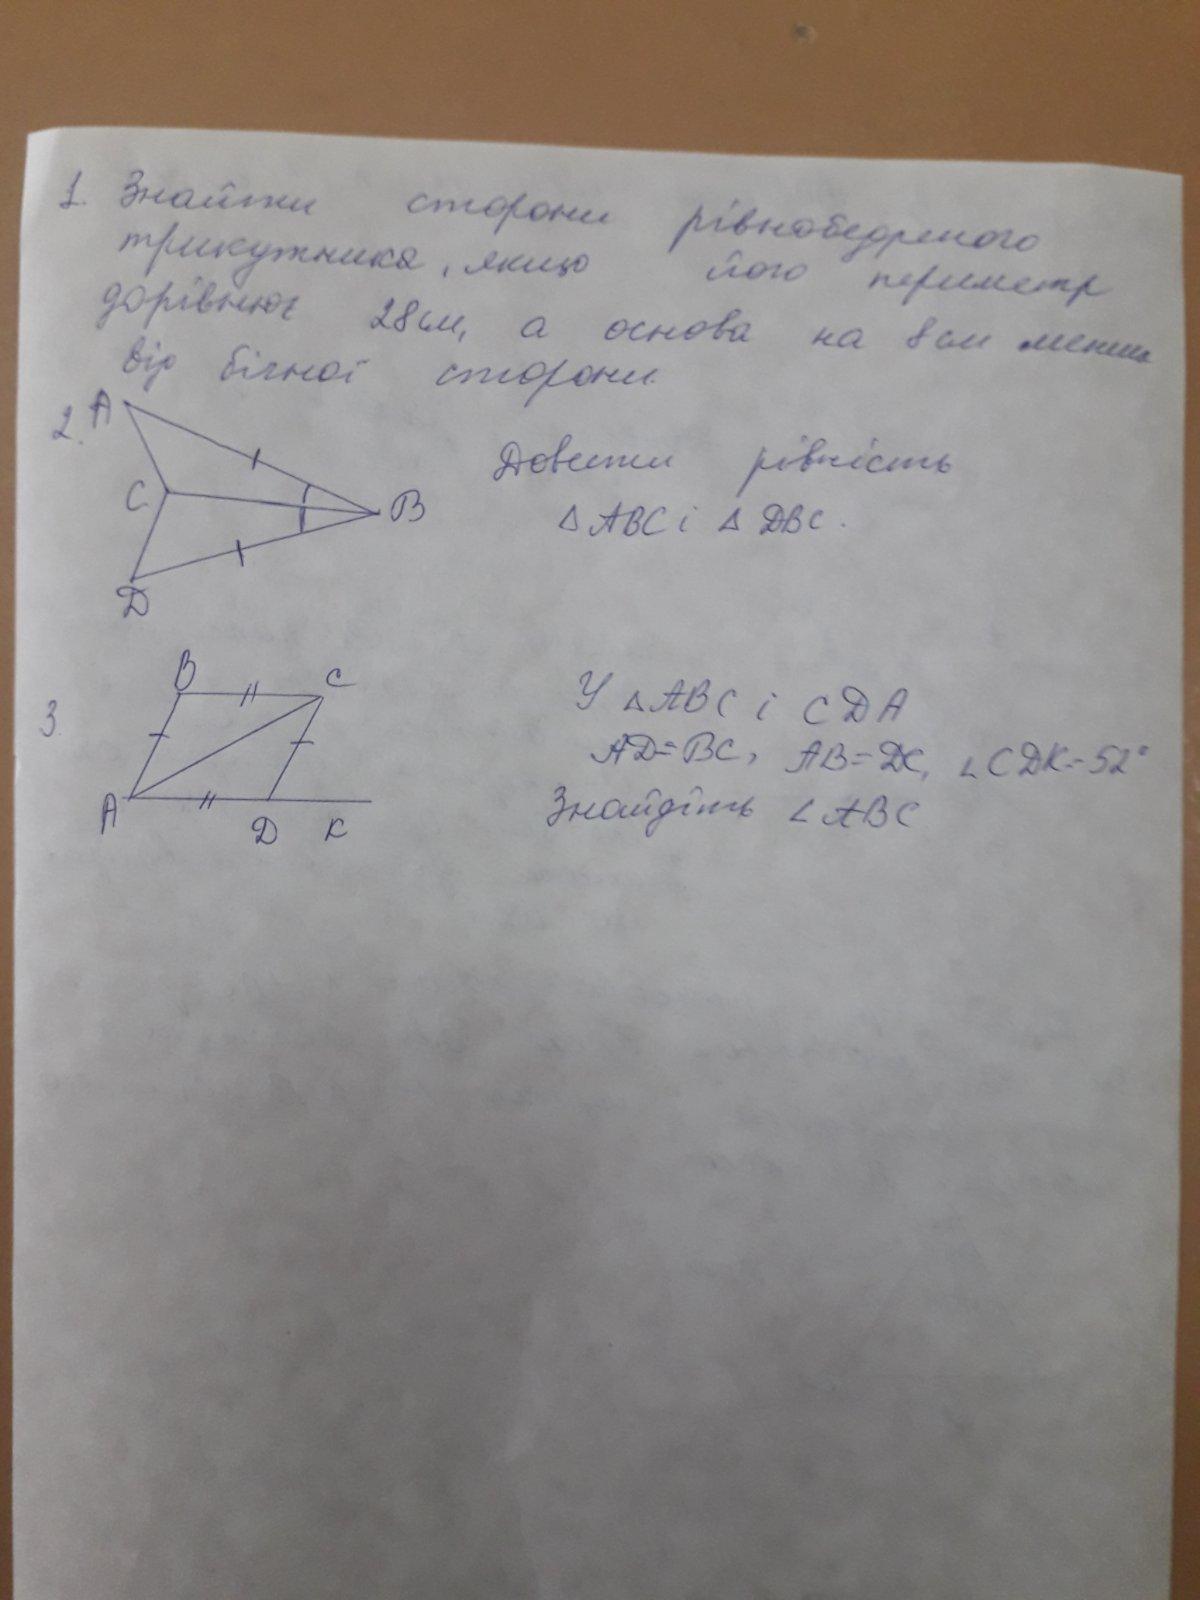 1. Знайти сторони рівнобедреного
трикутника, якщо його периметр
дорівнює 28см, а основа на 8см менша
від бічної сторони.
2. A
C
B
D
Довести рівність
△ABC і △DBC.
3.
B C
A D K
У △ABC і CDA
AD=BC, AB=DC, ∠CDK=52°
Знайдіть ∠ABC